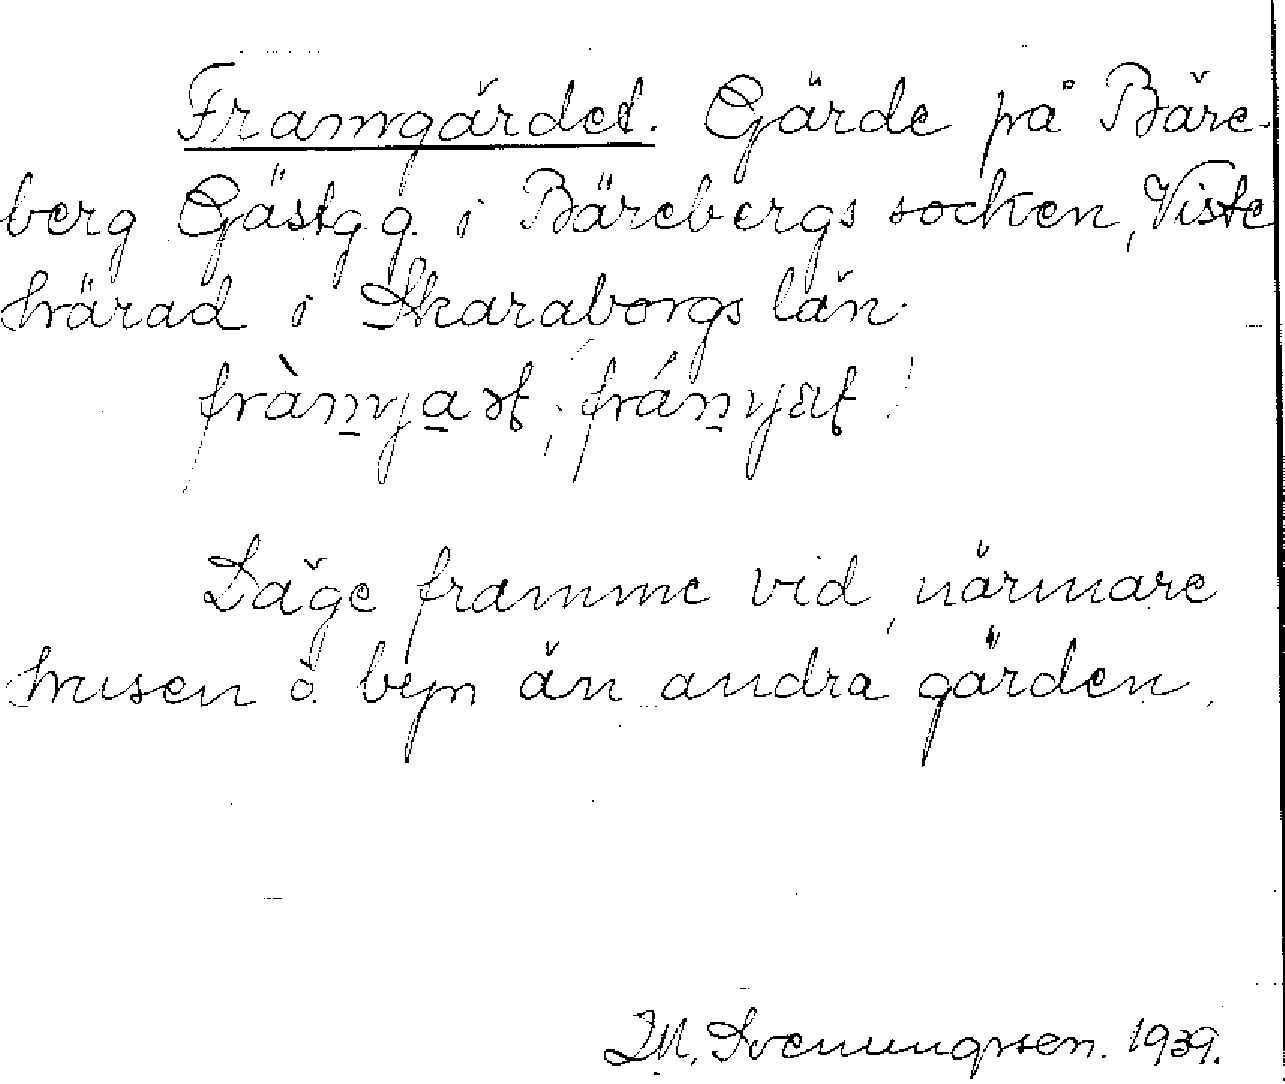 Framgärdet. Gärde på Bäre-
berg Gästg.g. i Bärebergs socken, Viste
härad i Skaraborgs län.
Läge framme vid, närmare
husen o. byn än andra gärden.
Svenungsson. 1939.